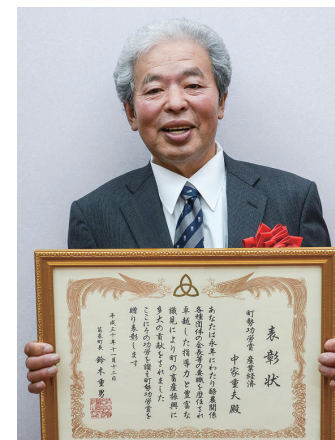 表彰状
町勢功労賞 産業経済
中家重夫 殿
あなたは永年にわたり酪農関係
各種団体の会長等の要職を歴任され
卓越した指導力と豊富な
識見により町の畜産振興に
多大の貢献をされました
ここにその功労を讃え町勢功労賞を
贈り表彰します
平成三十年十一月二日
葛巻町長 鈴木重男